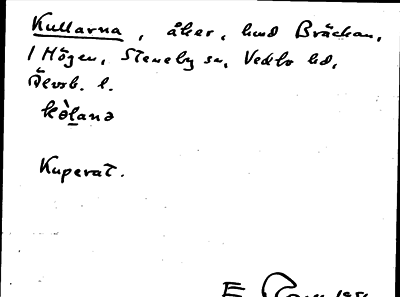 Kullarna, åker, hmd Bräckan,
1 Högen, Steneby sn, Vedbo hd,
Älvsb. l.
kòḷana
Kuperat.
E